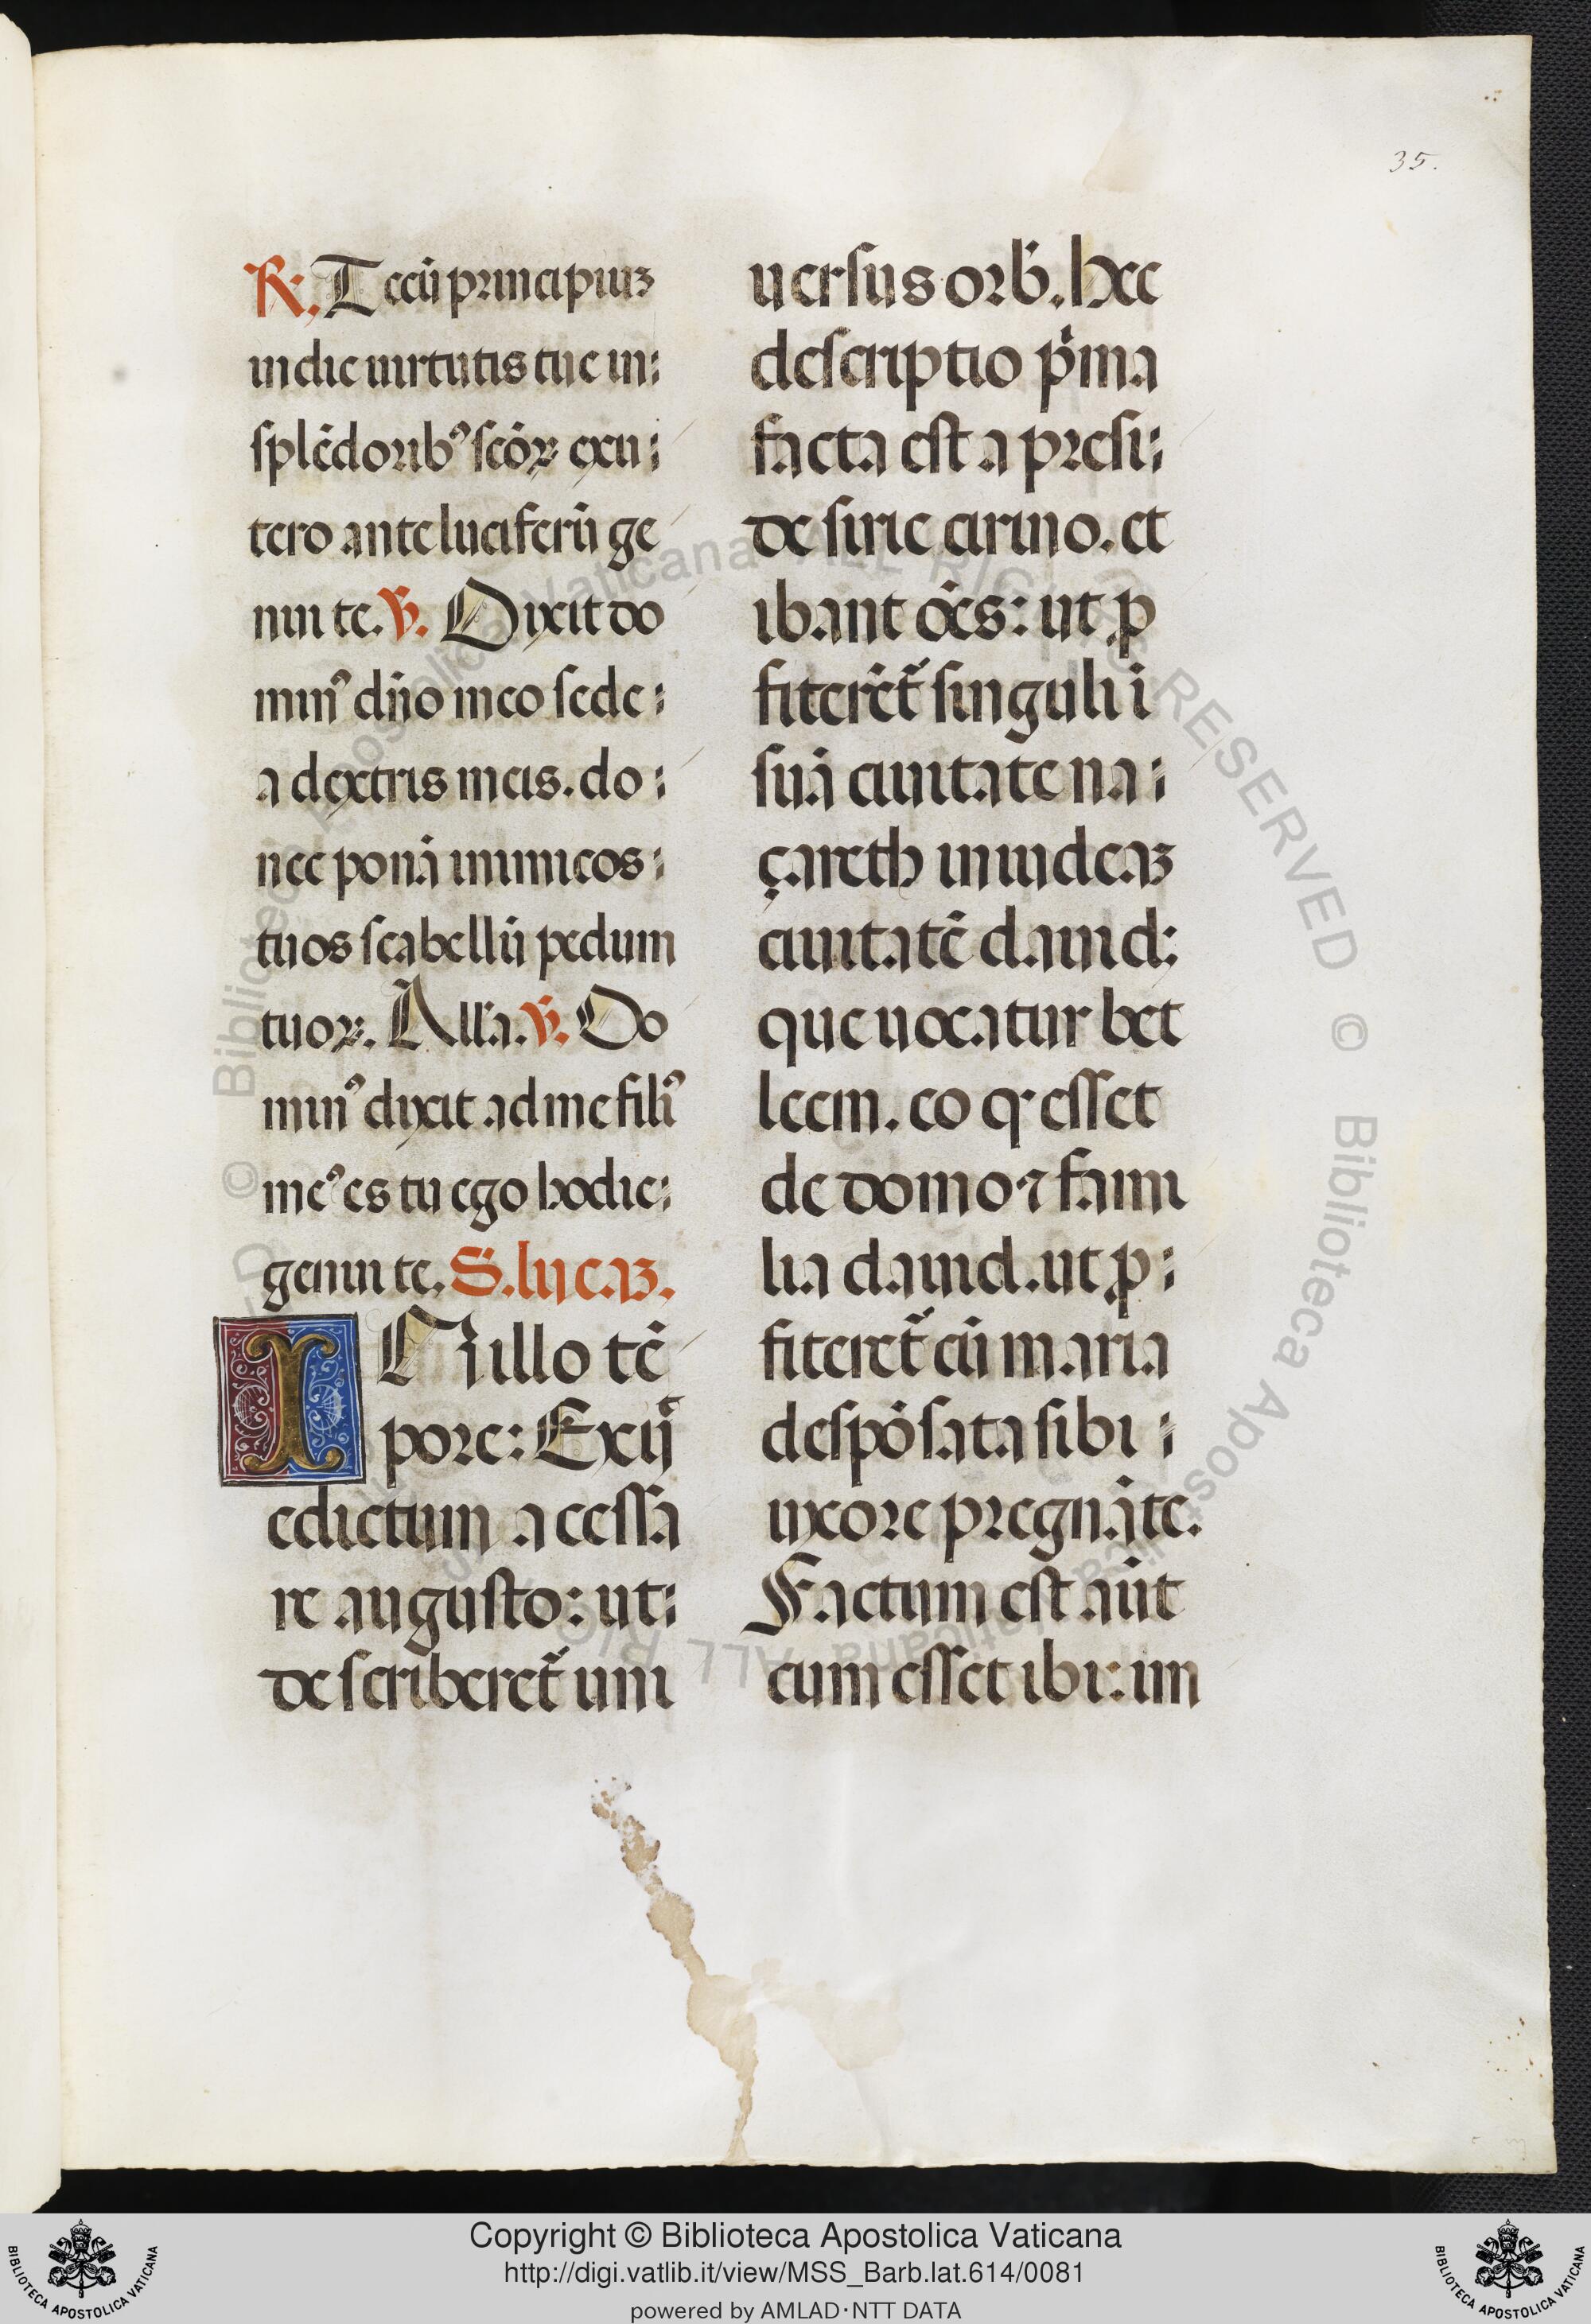 35.
℟. Tecū principiuꝫ
in die uirtutis tue in
splēdoribꝰ scōꝝ ex u
tero ante luciferū ge
nui te. ℣. Dixit do
minꝰ dño meo sede
a dextris meis. do
nec ponā inimicos
tuos scabellū pedum
tuoꝝ. All'a. ℣. Do
minꝰ dixit ad me filiꝰ
meꝰ es tu ego hodie
genui te. S. lucaꝫ.
IN illo tē
pore: Exiĳt
edictum a cessa
re augusto: ut
describeret̄ uni
uersus orb̄. hec
descriptio p̍ma
facta est a presi
de sirie cirino. et
ibant oēs: ut ꝓ
fiterēt̄ singuli ī
suā ciuitatē na
çareth in iudeaꝫ
ciuitatē dauid:
que uocatur bet
leem. eo q' esset
de domo ⁊ fami
lia dauid. ut ꝓ
fiteret̄ cū maria
despōsata sibi
uxore pregnāte.
Factum est aūt
cum esset ibi: im
Copyright © Biblioteca Apostolica Vaticana
http://digi.vatlib.it/view/MSS_Barb.lat.614/0081
powered by AMLAD·NTT DATA
BIBLIOTECA APOSTOLICA VATICANA
BIBLIOTECA APOSTOLICA VATICANA